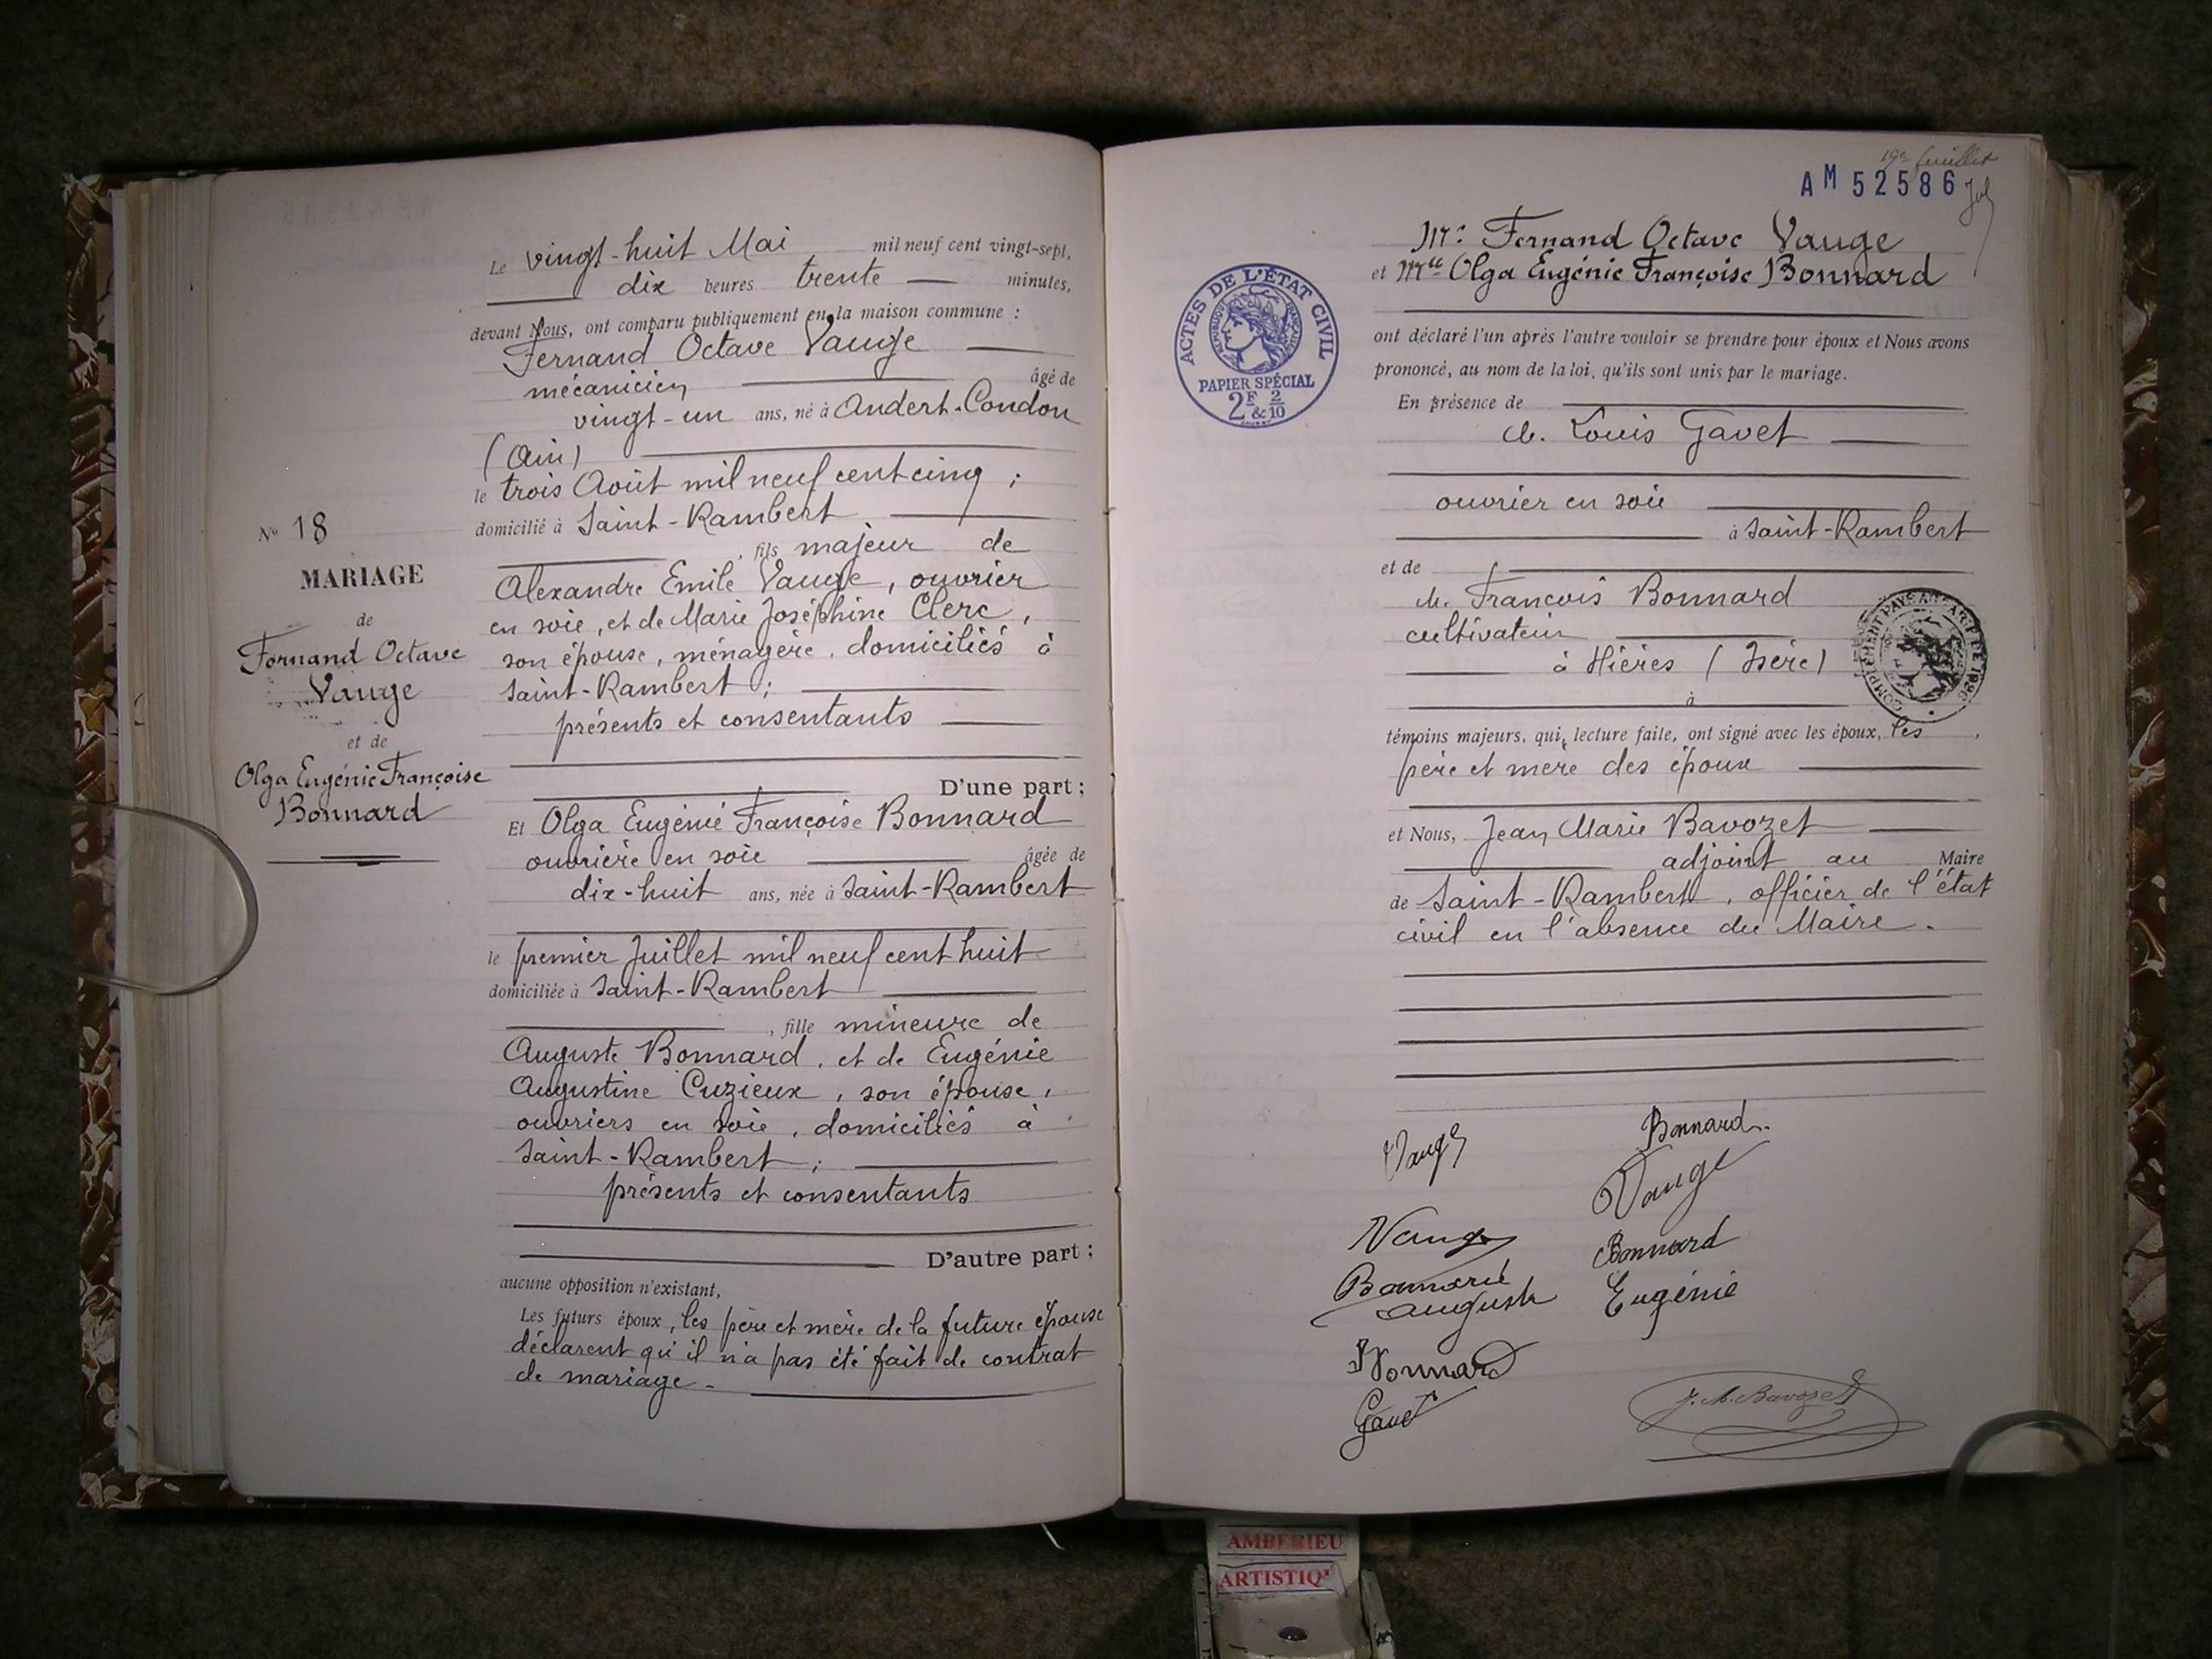 Le vingt-huit Mai mil neuf cent vingt-sept,
dix heures trente minutes,
devant Nous, ont comparu publiquement en la maison commune :
Fernand Octave Vauge
mécanicien âgé de
vingt-un ans, né à Andert-Condon
(Ain)
le trois Août mil neuf cent cinq ;
domicilié à Saint-Rambert
, fils majeur de
Alexandre Emile Vauge, ouvrier
en soie, et de Marie Joséphine Clerc,
son épouse, ménagère, domiciliés à
Saint-Rambert ;
présents et consentants
D'une part ;
Et Olga Eugénie Françoise Bonnard
ouvrière en soie âgée de
dix-huit ans, née à Saint-Rambert
le premier Juillet mil neuf cent huit
domiciliée à Saint-Rambert
, fille mineure de
Auguste Bonnard, et de Eugénie
Augustine Cuzieux, son épouse,
ouvriers en soie, domiciliés à
Saint-Rambert ;
présents et consentants
D'autre part ;
aucune opposition n'existant,
Les futurs époux, les père et mère de la future épouse
déclarent qu'il n'a pas été fait de contrat
de mariage.
N° 18
MARIAGE
de
Fernand Octave
Vauge
et de
Olga Eugénie Françoise
Bonnard
19e feuillet
AM 52586
Mr. Fernand Octave Vauge
et Mlle Olga Eugénie Françoise Bonnard
ont déclaré l'un après l'autre vouloir se prendre pour époux et Nous avons
prononcé, au nom de la loi, qu'ils sont unis par le mariage.
En présence de
M. Louis Gavet
ouvrier en soie
à Saint-Rambert
et de
M. François Bonnard
cultivateur
à Hières (Isère)
à
témoins majeurs, qui, lecture faite, ont signé avec les époux, les
père et mère des époux
et Nous, Jean Marie Bavozet
adjoint au Maire
de Saint-Rambert, officier de l'état
civil en l'absence du Maire.
ACTES DE L'ÉTAT CIVIL
RÉPUBLIQUE FRANÇAISE
PAPIER SPÉCIAL
2F & 2/10
Vauge
Bonnard
Vauge
Vauge
Bonnard
Bonnard
Auguste
Eugénie
Bonnard
Gavet
J. M. Bavozet
AMBERIEU
ARTISTIQ